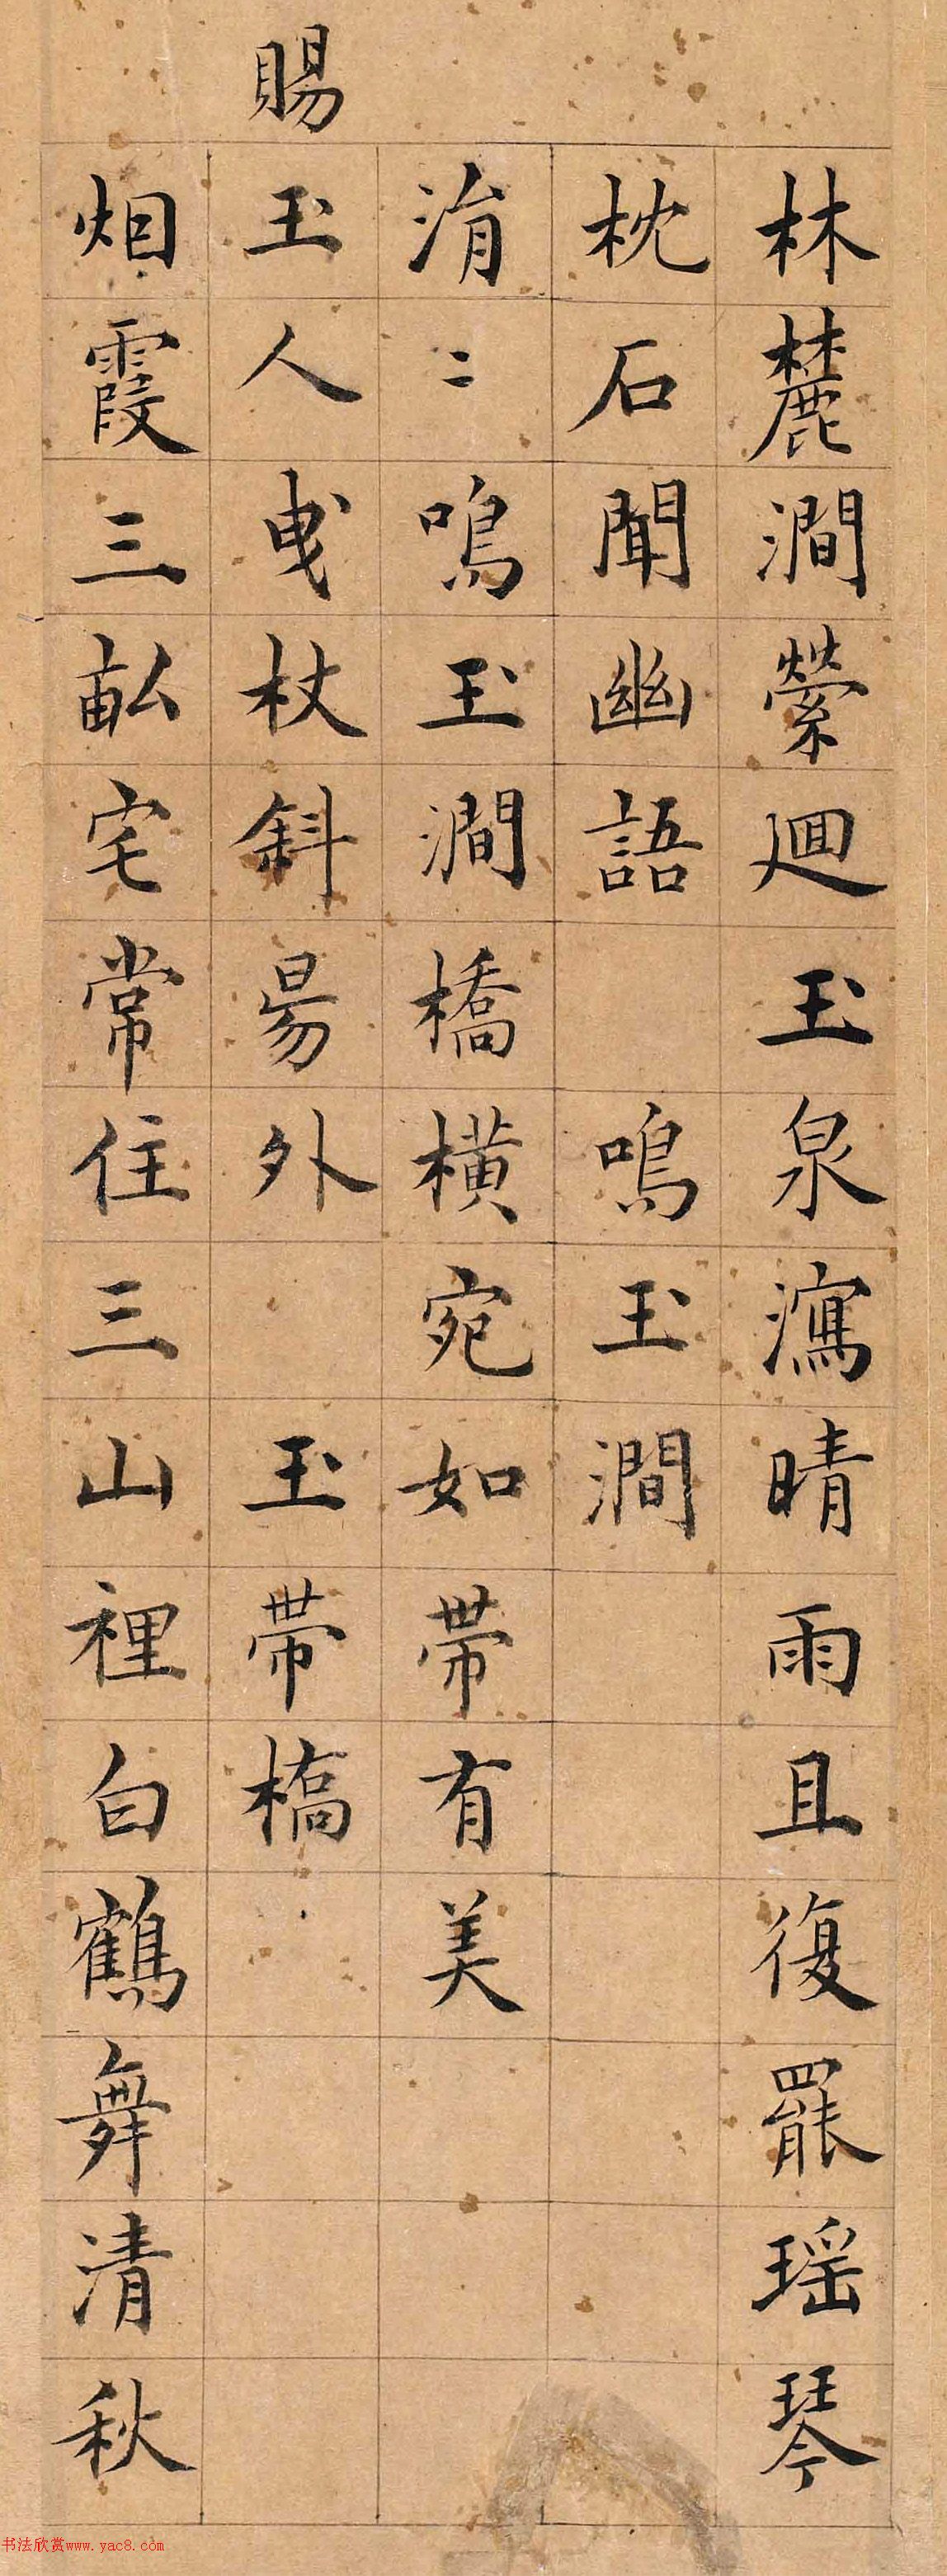 林麓澗縈廻玉泉瀉晴雨且復罷瑶琴
枕石聞幽語 鳴玉澗
淯二鳴玉澗橋橫宛如帶有美
賜玉人曳杖斜昜外 玉帶橋
烟霞三畝宅常住三山裡白鶴舞清秋
书法欣赏www.yac8.com